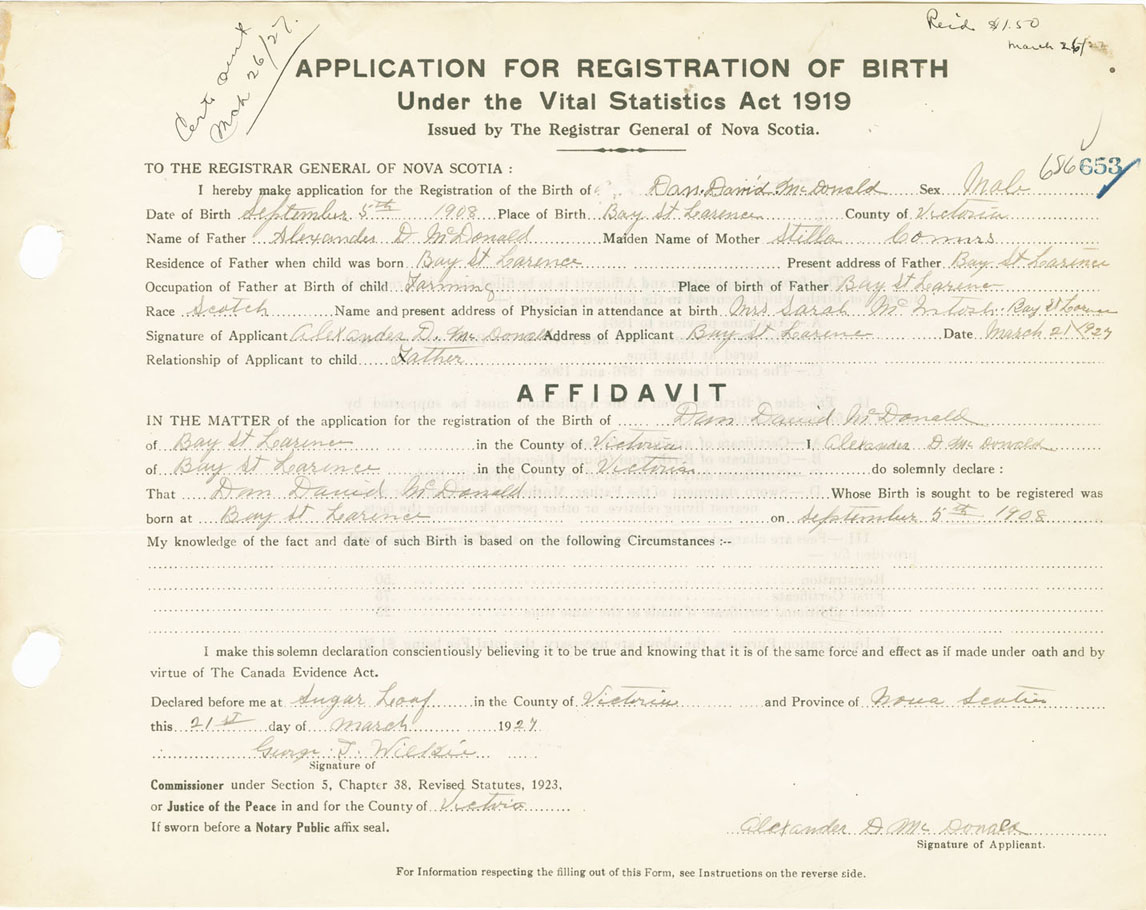 Certs sent
Mch 26/27.
Reid $1.50
March 26/27
APPLICATION FOR REGISTRATION OF BIRTH
Under the Vital Statistics Act 1919
Issued by The Registrar General of Nova Scotia.
686653
TO THE REGISTRAR GENERAL OF NOVA SCOTIA :
I hereby make application for the Registration of the Birth of Dan. David McDonald Sex Male
Date of Birth September 5th 1908 Place of Birth Bay St Larence County of Victoria
Name of Father Alexander D McDonald Maiden Name of Mother Stilla Connrs
Residence of Father when child was born Bay St Larence Present address of Father Bay St Larence
Occupation of Father at Birth of child Farming Place of birth of Father Bay St Larence
Race Scotch Name and present address of Physician in attendance at birth Mrs Sarah McIntosh. Bay St Larence
Signature of Applicant Alexander D. McDonald Address of Applicant Bay St Larence Date March 21/1927
Relationship of Applicant to child Father
AFFIDAVIT
IN THE MATTER of the application for the registration of the Birth of Dan David McDonald
of Bay St Larence in the County of Victoria I, Alexander D McDonald
of Bay St Larence in the County of Victoria do solemnly declare :
That Dan David McDonald Whose Birth is sought to be registered was
born at Bay St Larence on September 5th 1908
My knowledge of the fact and date of such Birth is based on the following Circumstances :--
I make this solemn declaration conscientiously believing it to be true and knowing that it is of the same force and effect as if made under oath and by
virtue of The Canada Evidence Act.
Declared before me at Sugar Loaf in the County of Victoria and Province of Nova Scotia
this 21st day of March 1927
George T. Wilkie
Signature of
Commissioner under Section 5, Chapter 38, Revised Statutes, 1923,
or Justice of the Peace in and for the County of Victoria
If sworn before a Notary Public affix seal.
Alexander D McDonald
Signature of Applicant.
For Information respecting the filling out of this Form, see Instructions on the reverse side.